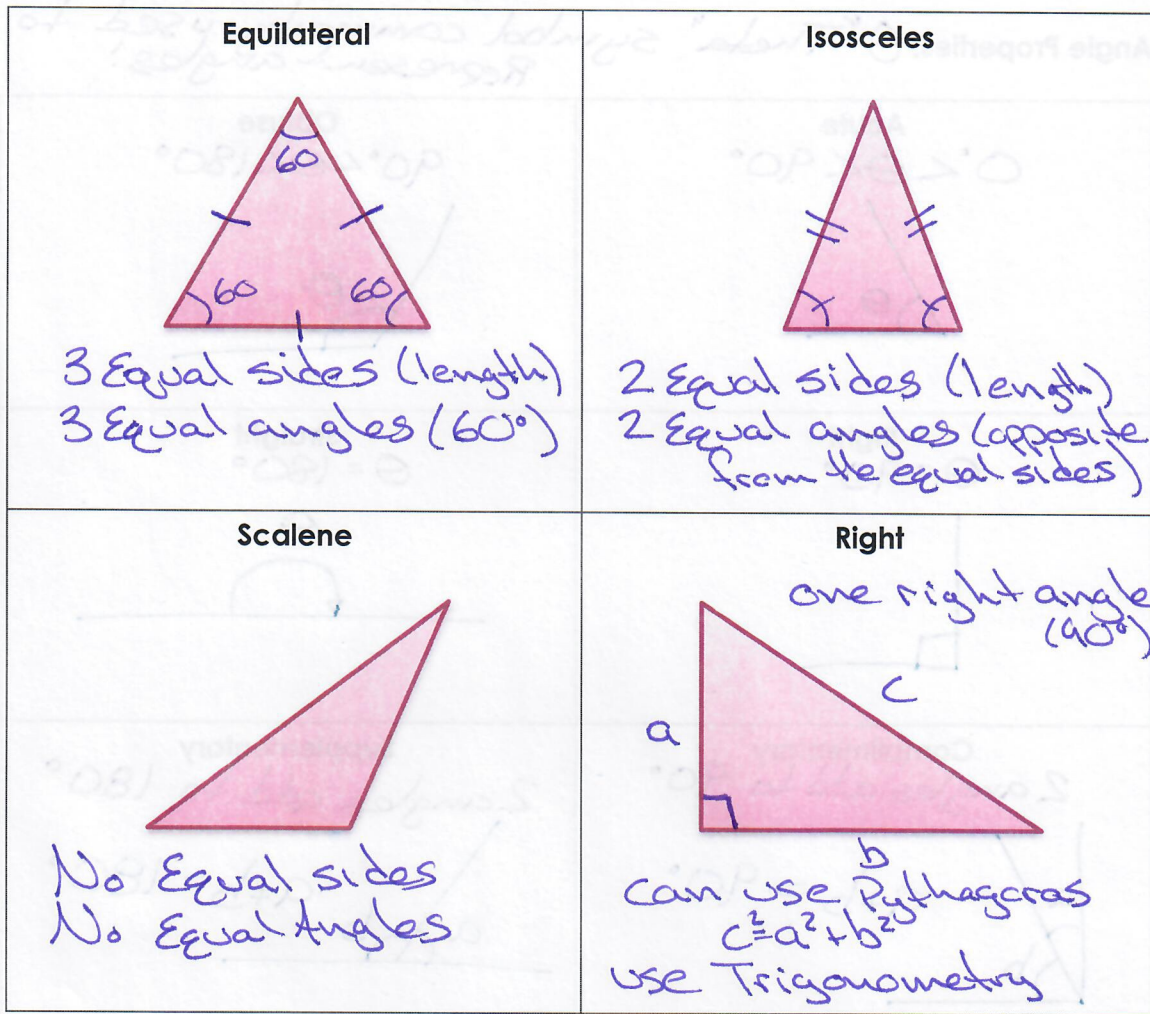 Equilateral
60
60
60
3 Equal sides (length)
3 Equal angles (60°)
Isosceles
2 Equal sides (length)
2 Equal angles (opposite
from the equal sides)
Scalene
No Equal sides
No Equal Angles
Right
one right angle
(90°)
c
a
b
can use Pythagoras
c²=a²+b²
use Trigonometry